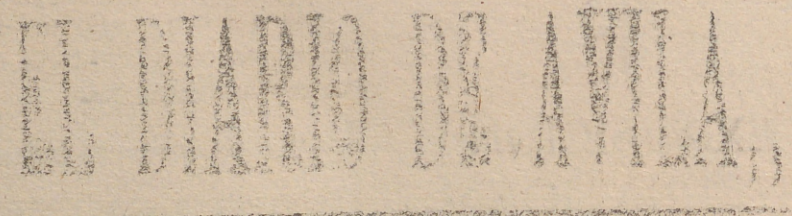 EL DIARIO DE AVILA,,